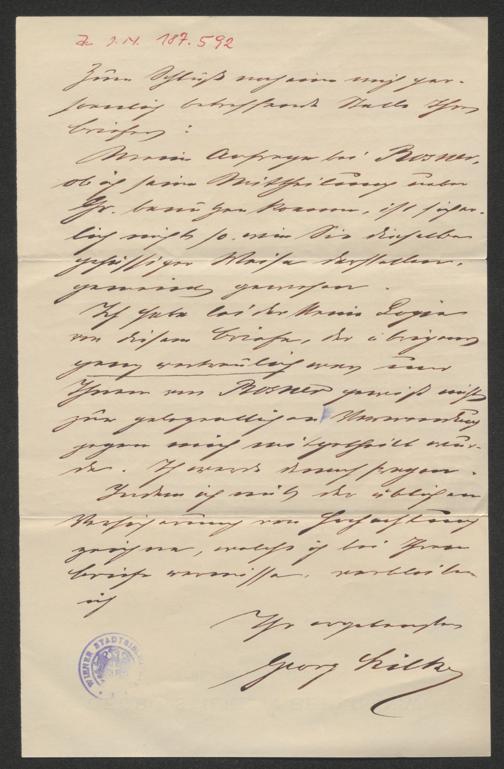 Z. J. N. 187.592
Zum Schluß noch eine mich per-
sönlich betreffende Stelle Ihres
Briefes:
Meine Anfrage bei Rosner,
ob ich seine Mittheilung ueber
Gr. benützen koenne, ist sicher-
lich nicht so, wie Sie dieselbe
gehässiger Weise darstellen,
gemeint gewesen.
Ich habe leider keine Copie
von diesem Briefe, der übrigens
ganz vertraulich war und
Ihnen von Rosner gewiß nicht
zur gelegentlichen Verwendung
gegen mich mitgetheilt wur-
de. Ich werde darnach fragen.
Indem ich mit der üblichen
Versicherung von Hochachtung
zeichne, welche ich bei Ihrem
Briefe vermisse, verbleibe
ich
Ihr ergebenster
Georg
WIENER STADTBIBL